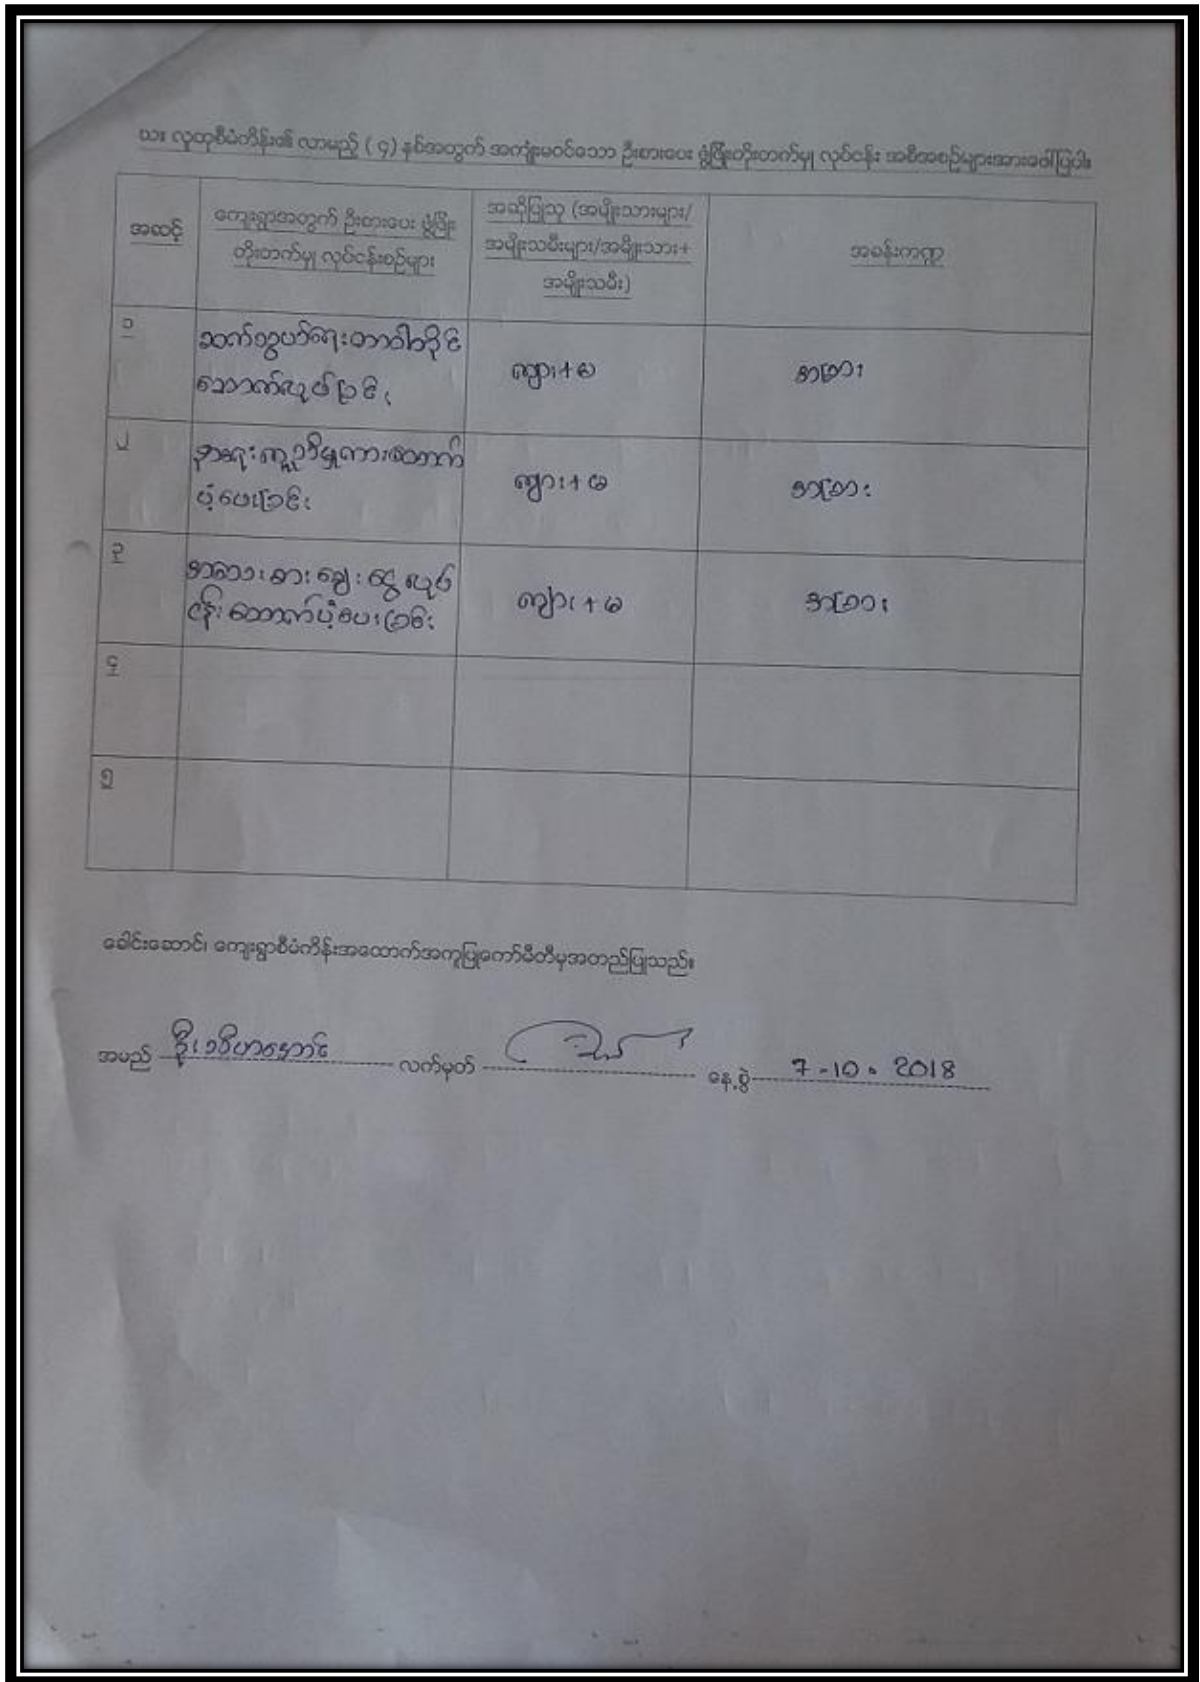 ဃ။ လူထုစီမံကိန်း၏ လာမည့် ( ၄) နှစ်အတွက် အကျုံးမဝင်သော ဦးစားပေး ဖွံ့ဖြိုးတိုးတက်မှု လုပ်ငန်း အစီအစဉ်များအားဖော်ပြပါ။
အဆင့်
ကျေးရွာအတွက် ဦးစားပေး ဖွံ့ဖြိုး
တိုးတက်မှု လုပ်ငန်းစဉ်များ
အဆိုပြုသူ (အမျိုးသားများ/
အမျိုးသမီးများ/အမျိုးသား+
အမျိုးသမီး)
အခန်းကဏ္ဍ
၁
ဆက်သွယ်ရေးတာဝါတိုင်
ဆောက်လုပ်ခြင်း
ကျား+မ
အခြား
၂
ပံ့ပေးခြင်း
ကျား+မ
အခြား
၃
အသေးစားချေးငွေလုပ်
ငန်းထောက်ပံ့ပေးခြင်း
ကျား+မ
အခြား
၄
၅
ခေါင်းဆောင်၊ ကျေးရွာစီမံကိန်းအထောက်အကူပြုကော်မီတီမှအတည်ပြုသည်။
အမည် ဦး လက်မှတ် နေ့စွဲ 7-10-2018